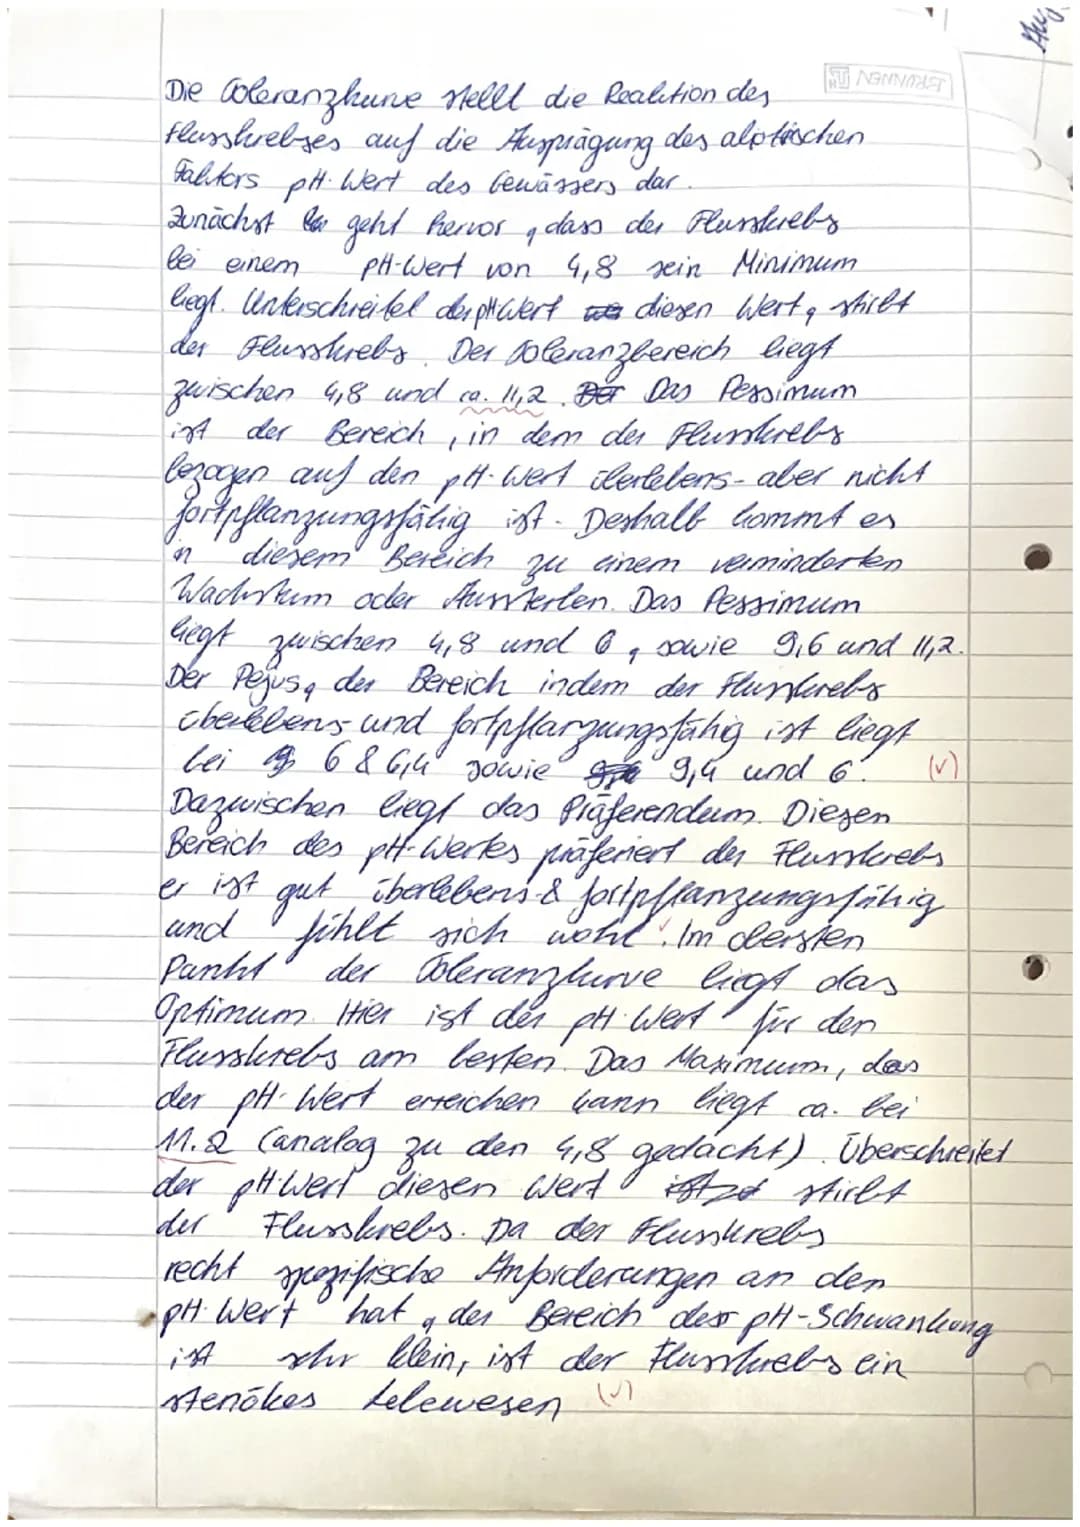 Die Toleranzkurve stellt die Reaktion des
Flusskrebses auf die Ausprägung des abiotischen
Faktors pH-Wert des Gewässers dar.
Zunächst geht hervor, dass der Flusskrebs
bei einem pH-Wert von 4,8 sein Minimum
liegt. Unterschreitet der pH-Wert diesen Wert, stirbt
der Flusskrebs. Der Toleranzbereich liegt
zwischen 4,8 und ca. 11,2. Das Pessimum
ist der Bereich, in dem der Flusskrebs
bezogen auf den pH-Wert überlebens- aber nicht
fortpflanzungsfähig ist. Deshalb kommt es
in diesem Bereich zu einem verminderten
Wachstum oder Aussterben. Das Pessimum
liegt zwischen 4,8 und 6, sowie 9,6 und 11,2.
Der Pejus, der Bereich indem der Flusskrebs
überlebens- und fortpflanzungsfähig ist liegt
bei 6 & 6,4 sowie 9,4 und 6. (✓)
Dazwischen liegt das Präferendum. Diesen
Bereich des pH-Wertes präferiert der Flusskrebs
er ist gut überlebens- & fortpflanzungsfähig
und fühlt sich wohl. Im obersten
Punkt der Toleranzkurve liegt das
Optimum. Hier ist der pH-Wert für den
Flusskrebs am besten. Das Maximum, das
der pH-Wert erreichen kann liegt ca. bei
11.2 (analog zu den 4,8 gedacht). Überschreitet
der pH-Wert diesen Wert stirbt
der Flusskrebs. Da der Flusskrebs
recht spezifische Anforderungen an den
pH-Wert hat, der Bereich der pH-Schwankung
ist sehr klein, ist der Flusskrebs ein
stenökes Lebewesen (✓)